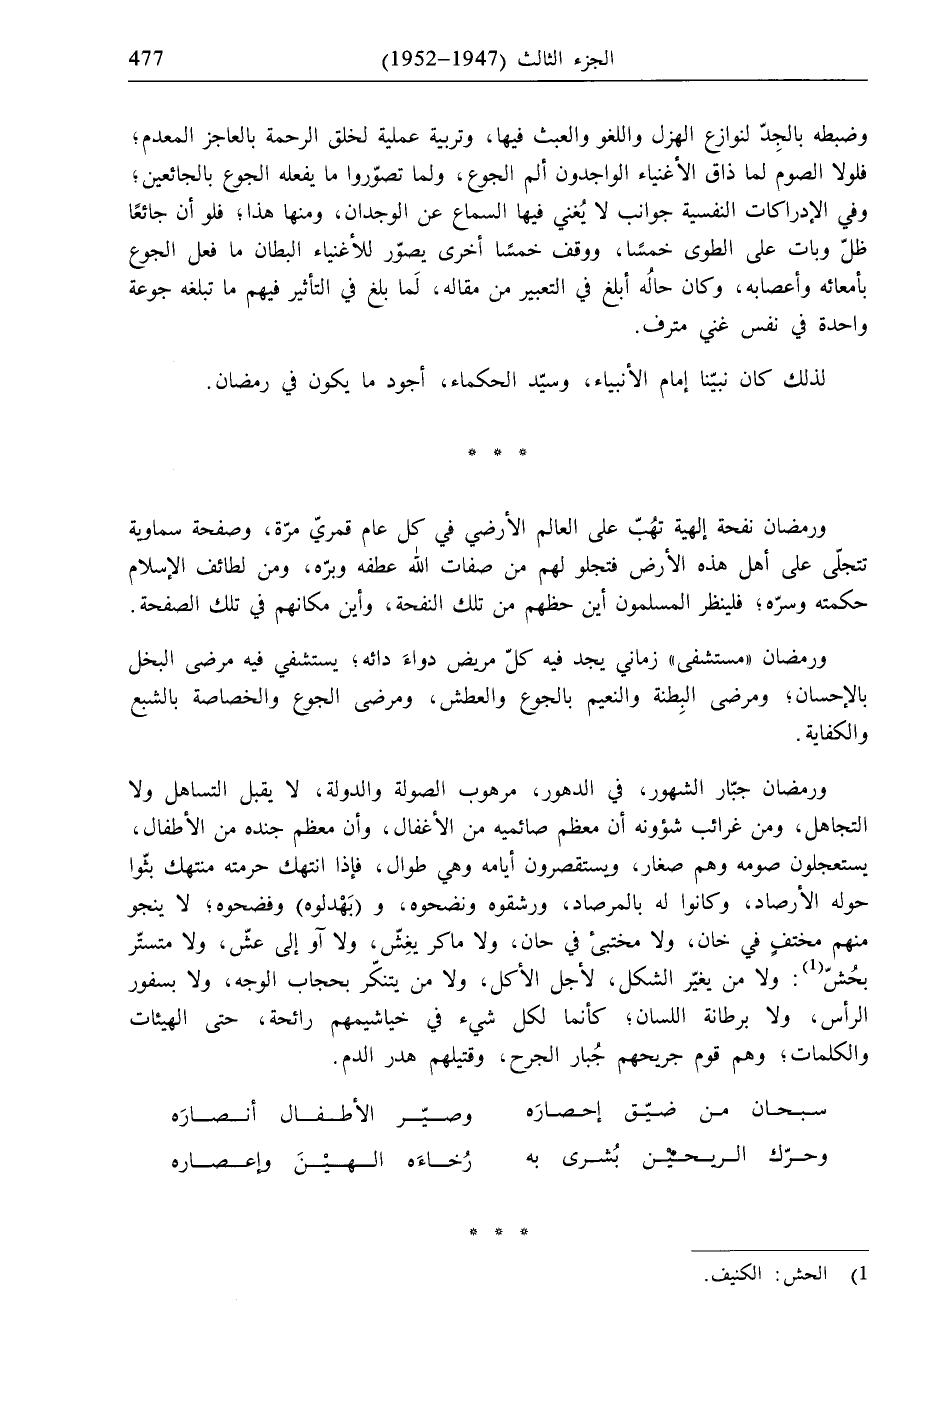 الجزء الثالث (1947–1952)
477
وضبطه بالجِدّ لنوازع الهزل واللغو والعبث فيها، وتربية عملية لخلق الرحمة بالعاجز المعدم؛
فلولا الصوم لما ذاق الأغنياء الواجدون ألم الجوع، ولما تصوّروا ما يفعله الجوع بالجائعين؛
وفي الإدراكات النفسية جوانب لا يُغني فيها السماع عن الوجدان، ومنها هذا؛ فلو أن جائعًا
ظلّ وبات على الطوى خمسًا، ووقف خمسًا أخرى يصوّر للأغنياء البطان ما فعل الجوع
بأمعائه وأعصابه، وكان حالُه أبلغ في التعبير من مقاله، لَما بلغ في التأثير فيهم ما تبلغه جوعة
واحدة في نفس غني مترف.
لذلك كان نبيّنا إمام الأنبياء، وسيّد الحكماء، أجود ما يكون في رمضان.
* * *
ورمضان نفحة إلهية تهُبّ على العالم الأرضي في كل عام قمريّ مرّة، وصفحة سماوية
تتجلّى على أهل هذه الأرض فتجلو لهم من صفات الله عطفه وبرّه، ومن لطائف الإسلام
حكمته وسرّه؛ فلينظر المسلمون أين حظهم من تلك النفحة، وأين مكانهم في تلك الصفحة.
ورمضان «مستشفى» زماني يجد فيه كلّ مريض دواءَ دائه؛ يستشفي فيه مرضى البخل
بالإحسان؛ ومرضى البِطنة والنعيم بالجوع والعطش، ومرضى الجوع والخصاصة بالشبع
والكفاية.
ورمضان جبّار الشهور، في الدهور، مرهوب الصولة والدولة، لا يقبل التساهل ولا
التجاهل، ومن غرائب شؤونه أن معظم صائميه من الأغفال، وأن معظم جنده من الأطفال،
يستعجلون صومه وهم صغار، ويستقصرون أيامه وهي طوال، فإذا انتهك حرمته منتهك بثّوا
حوله الأرصاد، وكانوا له بالمرصاد، ورشقوه ونضحوه، و (بَهْدلوه) وفضحوه؛ لا ينجو
منهم مختفٍ في خان، ولا مختبئ في حان، ولا ماكر يغِشّ، ولا آو إلى عشّ، ولا متستّر
بحُشّ(1): ولا من يغيّر الشكل، لأجل الأكل، ولا من يتنكّر بحجاب الوجه، ولا بسفور
الرأس، ولا برطانة اللسان؛ كأنما لكل شيء في خياشيمهم رائحة، حتى الهيئات
والكلمات؛ وهم قوم جريحهم جُبار الجرح، وقتيلهم هدر الدم.
سبحان من ضيّق إحصارَه وصيّر الأطفال أنصارَه
وحرّك الريحيْن بُشرى به رُخاءَه الهيْنَ وإعصاره
* * *
1) الحش: الكنيف.